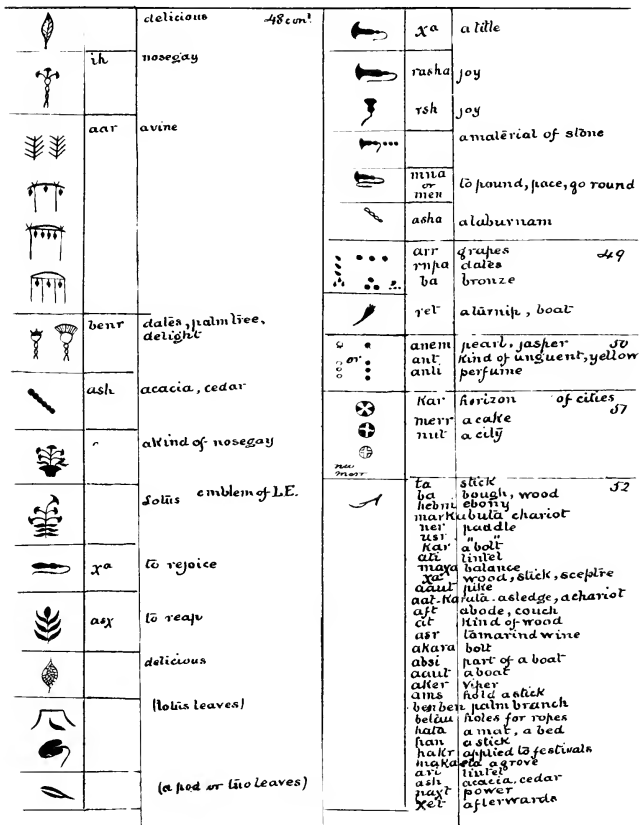 delicious 48 cont
ih nosegay
aar a vine
benr dates, palm tree,
delight
ash acacia, cedar
a kind of nosegay
Lotus emblem of L.E.
xa to rejoice
asx to reap
delicious
(lotus leaves)
(a pod or two leaves)
xa a title
rasha joy
rsh joy
a material of stone
mna
or to pound, pace, go round
men
asha a laburnam
arr grapes 49
rnpa dates
ba bronze
ret a turnip, boat
anem pearl, jasper 50
or ant Kind of unguent, yellow
anti perfume
Kar horizon of cities
51
merr a cake
nut a city
nu
merr
ta stick 52
ba bough, wood
hebni ebony
markubuta chariot
ner paddle
usr " "
Kar a bolt
ati lintel
maxa balance
xa wood, stick, sceptre
aaut pike
aat-Karuta-a sledge, a chariot
aft abode, couch
at Kind of wood
asr tamarind wine
akara bolt
absi part of a boat
aaut a boat
aker viper
ams hold a stick
benben palm branch
betau holes for ropes
hata a mat, a bed
han a stick
hakr applied to festivals
makaeta a grove
ari lintel
ash acacia, cedar
naxt power
xet afterwards